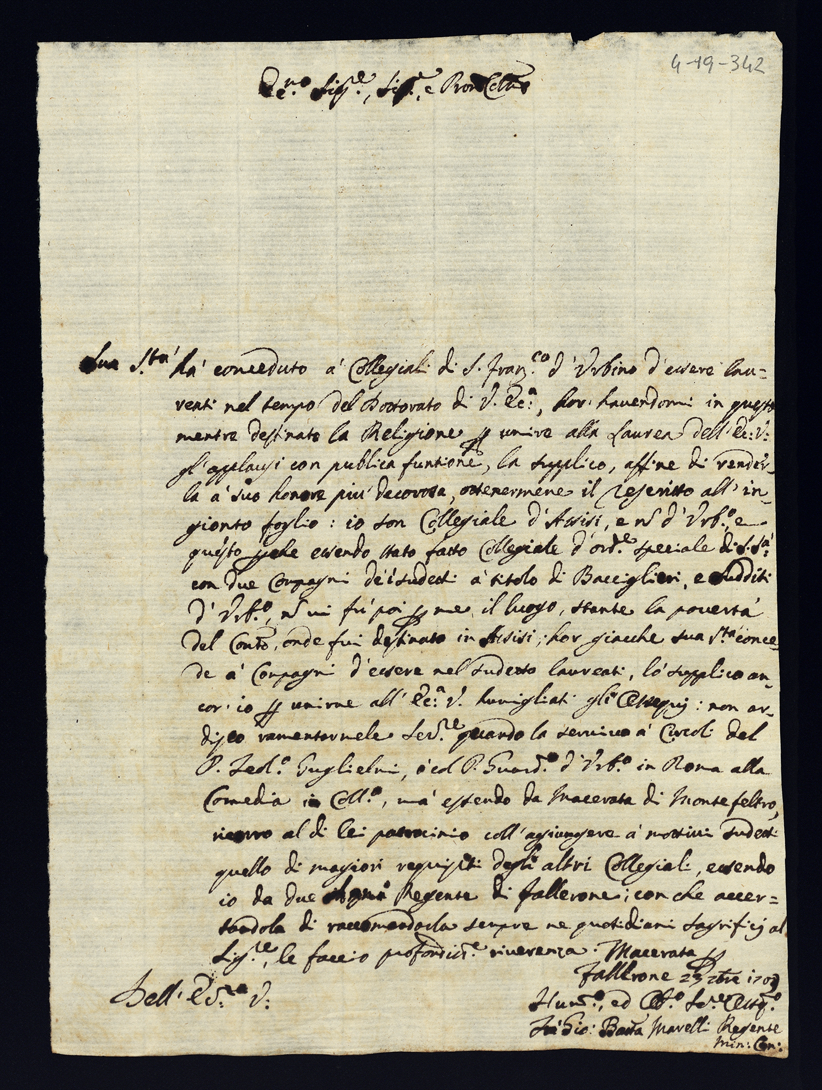 4-19-342
Sig.re, Sig.re, e Pron
Sua S.tà ha' conceduto a' Collegiali di S. Franc.co d' Urbino d'essere lau=
reati nel tempo del Dottorato di V. Ec.a, hor havendomi in questo
mentre destinato la Religione p unire alla Laurea dell' Ec: V:
gl' applausi con publica funtione, la supplico, affine di render=
la a' suo honore più decorosa, ottenermene il rescritto all' in=
gionto foglio: io son Collegiale d' Assisi, e nõ d' Urb.o, e
questo perche essendo stato fatto Collegiale d' ord.e speciale di S. S.tà
con due Compagni de i sudetti a titolo di Bacciglieri, e sudditi
d' Urb.o, nõ vi fù poi p me il luogo, stante la povertà
del Conto, onde fui destinato in Assisi; hor giacche sua S.tà conce=
de a' Compagni d'essere nel sudetto laureati, lo supplico an=
cor io p unirne all' Ec.a V. humigliati gli Ossequij: non ar=
disco ramentormele Ser.re quando la servivo a' Circoli del
P. Teol.o Guglielmi, ò col P. Guard.o d' Urb.o in Roma alla
Comedia in Coll.o, mà essendo da Macerata di Montefeltro,
ricorro al di lei patrocinio coll' agiungere a' mottivi sudetti
quello di magiori requisiti degli altri Collegiali, essendo
io da due Regente di Fallerone; con che accer=
tandola di raccomandarla sempre ne quotidiani sagrificij al
Sig.re, le faccio profondiss.e riverenza. Macerata p
Fallerone 23
Dell' V:
Hum.o, ed Obl.o Ser.e Osseq.o
Frà Gio: Batta Marelli Regente
Min: Con: